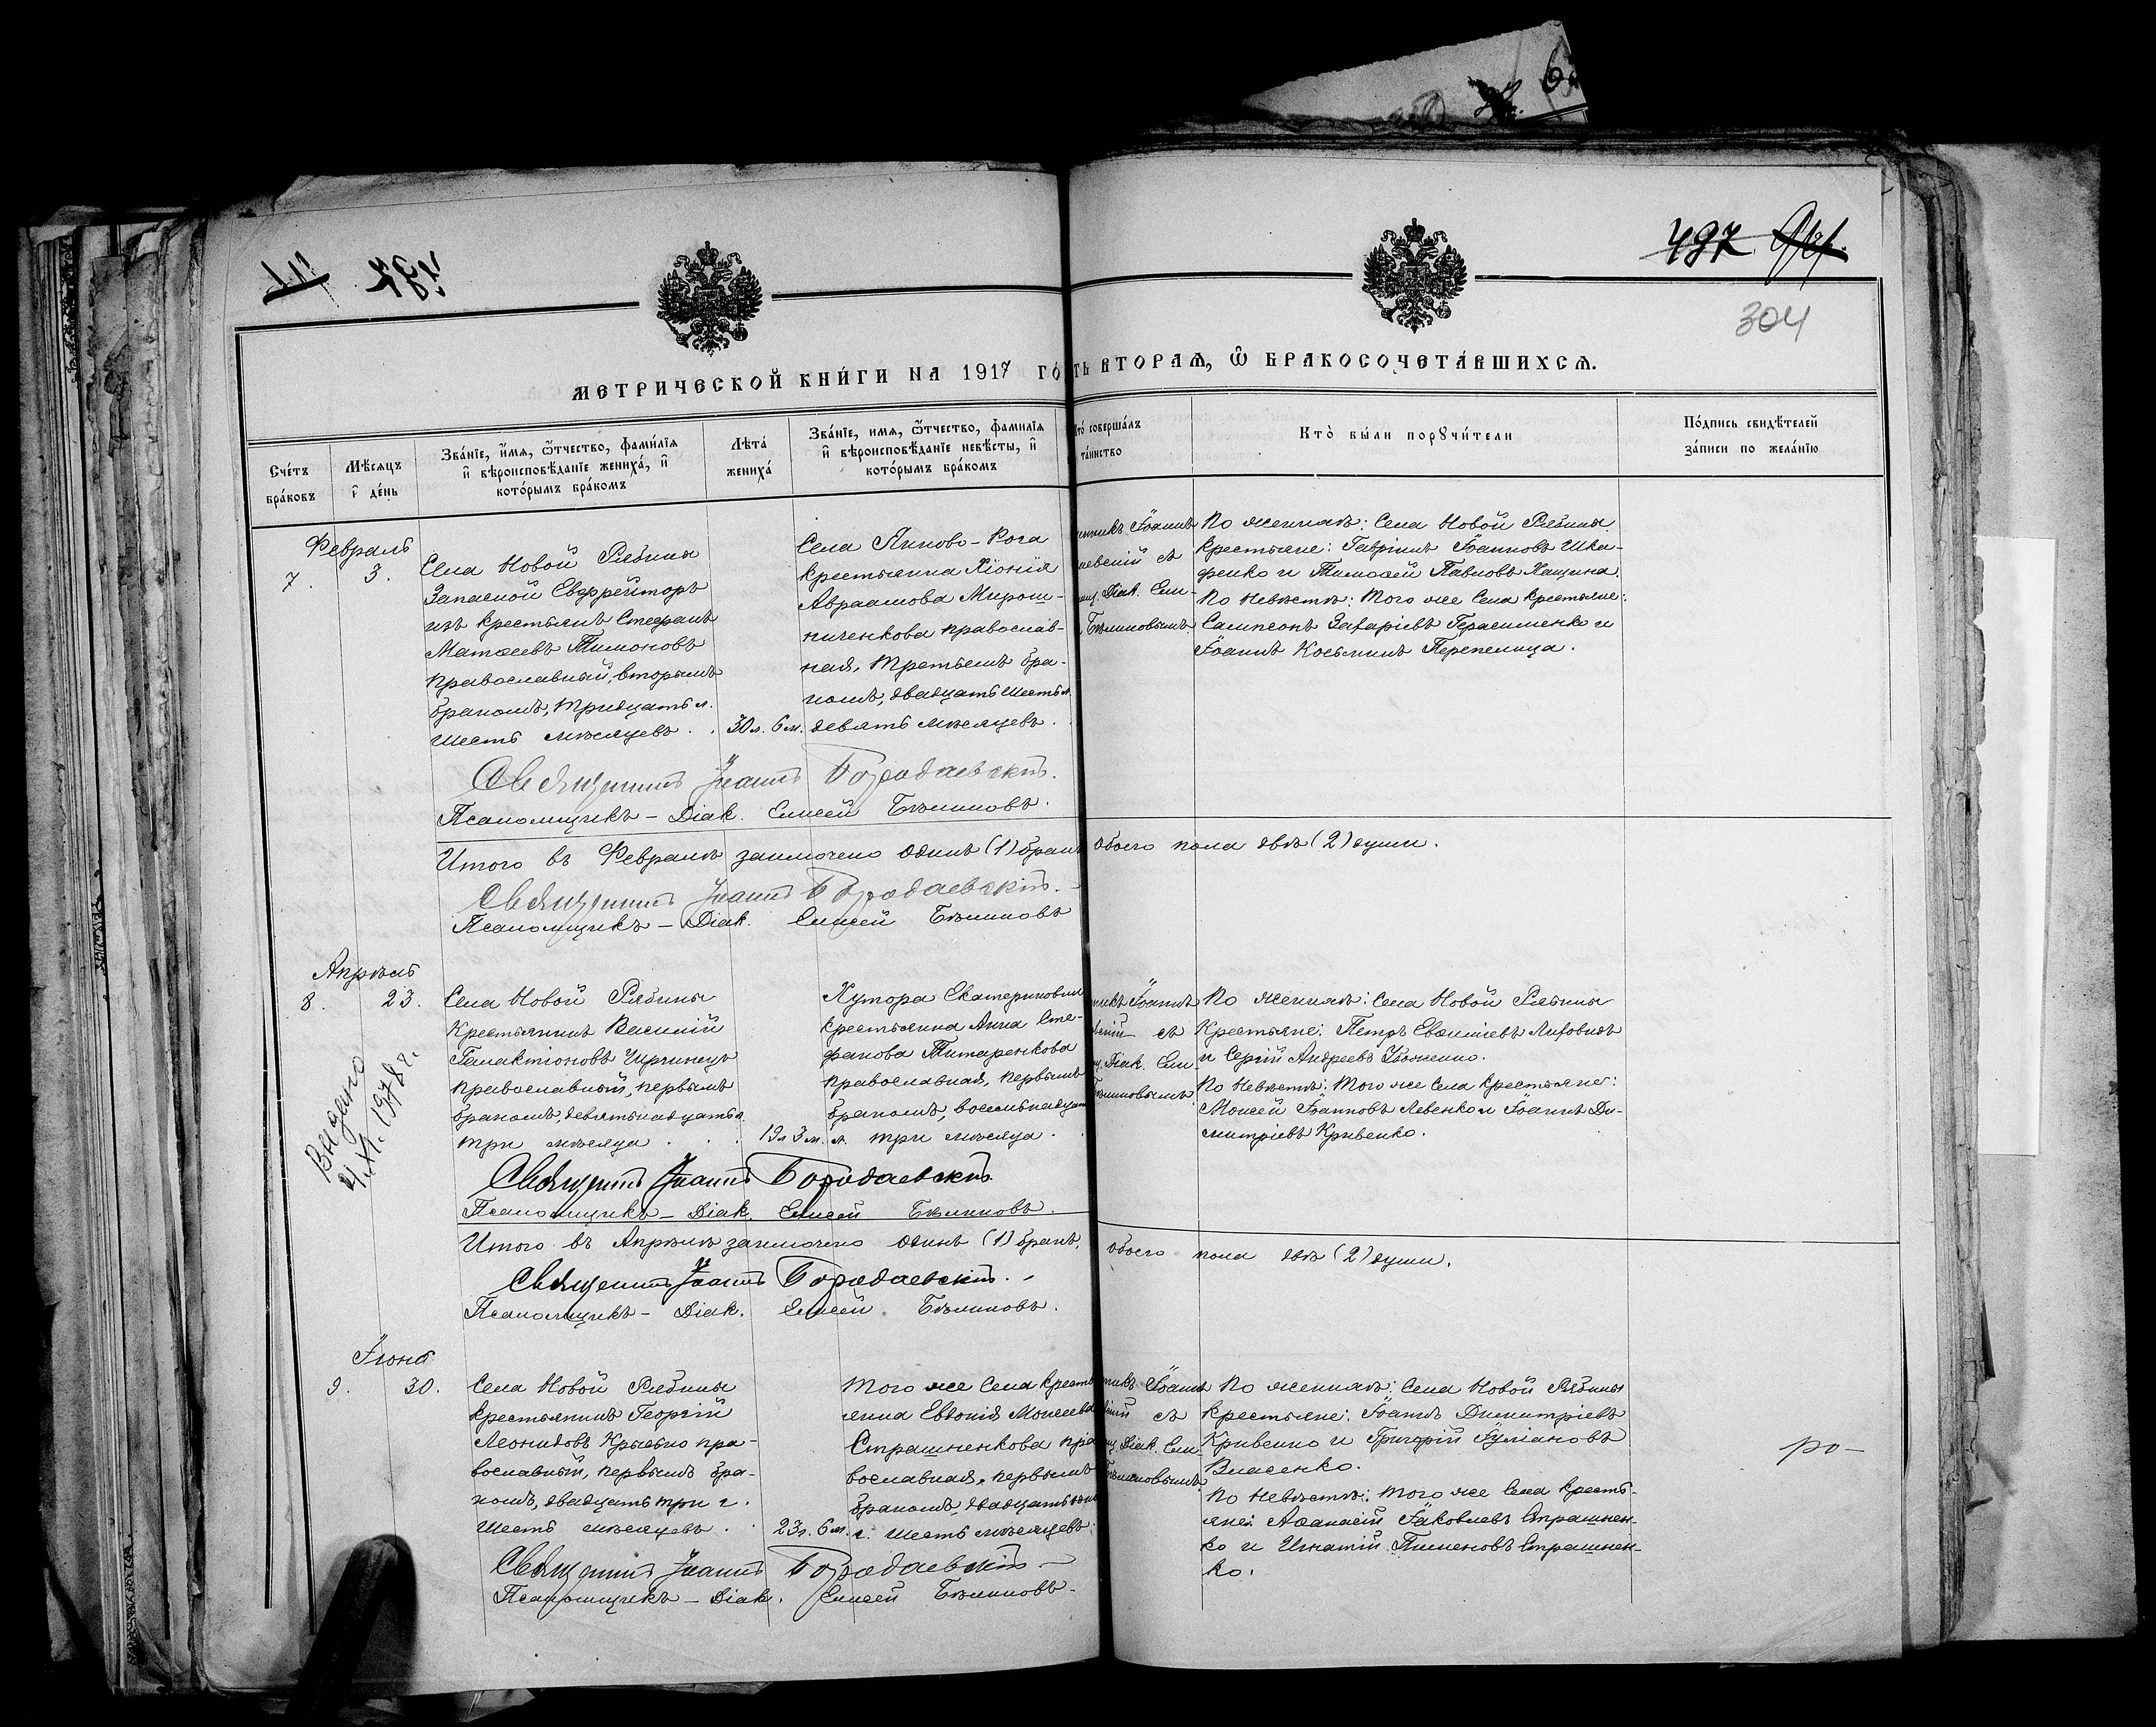 497
304
МЕТРИЧЕСКОЙ КНИ́ГИ НА 1917 ГО́
ТЬ ВТОРАѦ, Ѡ БРАКОСОЧЕТА́ВШИХСѦ.
Сче́тъ бра́ковъ
Мѣ́сяцъ и҆ де́нь
Зва́нїе, и҆́мѧ, ѻ҆́тчество, фами́лїѧ
и҆ вѣроисповѣ́данїе жениха́, и҆
кото́рымъ бра́комъ
Лѣта́ жениха́
Зва́нїе, имѧ, ѻ҆́тчество, фамилїѧ
и҆ вѣроисповѣ́данїе невѣ́сты, и҆
кото́рымъ бра́комъ
то́ соверша́лъ
та́инство
Кто̀ бы́ли порꙋчи́тели
По́дпись свидѣ́телей
за́писи по жела́нїю
Февраль
7. 3.
Села Новой Рябины
Запасной Ефрейторъ
изъ крестьянъ Стефанъ
Матѳеевъ Тимоновъ
православный, вторымъ
бракомъ, тридцать л.
шесть мѣсяцевъ.
30 л. 6 м.
Села Янково-Рога
крестьянка Хіонія
Авраамова Мирош-
ниченкова православ-
ная, третьимъ бра-
комъ, двадцать шесть л.
девять мѣсяцевъ.
енникъ Іоаннъ
левскій съ
щ. Діак. Ели-
Бѣликовымъ.
По женихѣ: Села Новой Рябины
крестьяне: Гавріилъ Іоанновъ Шка-
фенко и Тимоѳей Павловъ Хащина.
По невѣстѣ: того же Села крестьяне:
Сампсонъ Захаріевъ Герасименко и
Іоаннъ Косьминъ Перепелица.
Священникъ Іоаннъ Бородаевскій.
Псаломщикъ – Діак. Елисей Бѣликовъ.
Итого въ Февралѣ заключено одинъ (1) бракъ
обоего пола двѣ (2) души.
Священникъ Іоаннъ Бородаевскій.
Псаломщикъ – Діак. Елисей Бѣликовъ
Апрѣль
8. 23.
Видано
4.XI.1978 г.
Села Новой Рябины
Крестьянинъ Василій
Галактіоновъ Чирчинецъ
православный, первымъ
бракомъ, девятнадцать л.
три мѣсяца.
19 л 3 м.
Хутора Екатериновки
крестьянка Анна Сте-
фанова Титаренкова
православная, первымъ
бракомъ, восемнадцат
л. три мѣсяца.
никъ Іоаннъ
вскій съ
щ. Діак. Ели-
Бѣликовымъ
По женихѣ: Села Новой Рябины
Крестьяне: Петръ Евѳиміевъ Лиховидъ
и Сергій Андреевъ
По невѣстѣ: того же Села крестьяне:
Моисей Іоанновъ Левенко и Іоаннъ Ди-
митріевъ Кривенко.
Священникъ Іоаннъ Бородаевскій.
Псаломщикъ – Діак. Елисей Бѣликовъ.
Итого въ Апрѣлѣ заключено одинъ (1) бракъ,
обоего пола двѣ (2) души.
Священникъ Іоаннъ Бородаевскій.
Псаломщикъ – Діак. Елисей Бѣликовъ.
Іюнь
9. 30.
Села Новой Рябины
крестьянинъ Георгій
Леонидовъ Крысько пра-
вославный, первымъ бра-
комъ, двадцать три г.
шесть мѣсяцевъ.
23 л. 6 м.
Того же Села кресть
янка Евѳонія Моисеева
Страшненкова пра
вославная, первымъ
бракомъ двадцать
г. шесть мѣсяцевъ.
никъ Іоаннъ
вскій съ
щ. Діак. Ели-
Бѣликовымъ
По женихѣ: Села Новой Рябины
крестьяне: Іоаннъ Димитріевъ
Кривенко и Григорій Іуліановъ
Власенко.
По невѣстѣ: того же Села кресть-
яне: Аѳанасій Іаковлевъ Страшнен-
ко и Игнатій Пименовъ Страшнен-
ко.
Священникъ Іоаннъ Бородаевскій
Псаломщикъ – Діак. Елисей Бѣликовъ.